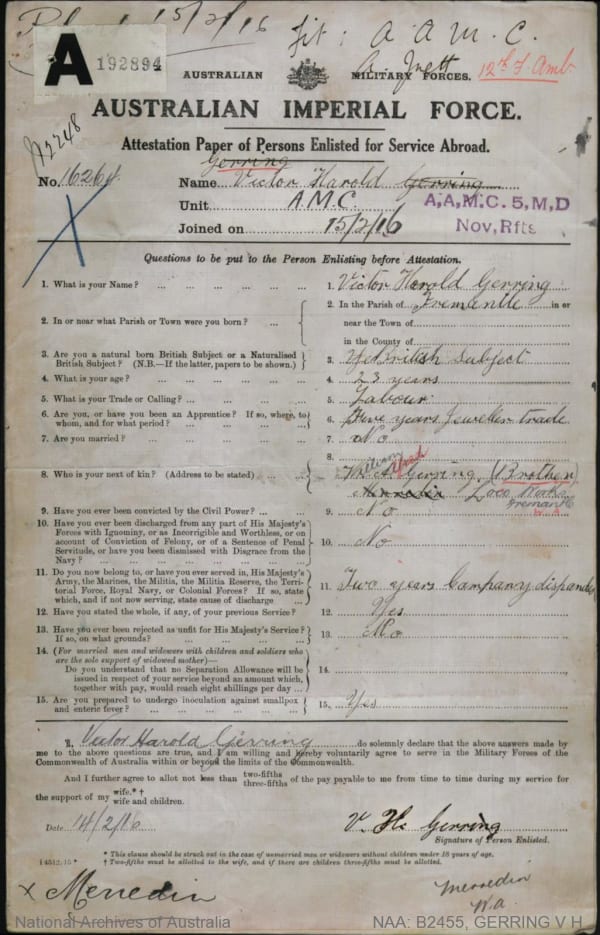 15/2/16
fit: A A M C
A
192894
AUSTRALIAN MILITARY FORCES.
12th F. Amb.
AUSTRALIAN IMPERIAL FORCE.
Attestation Paper of Persons Enlisted for Service Abroad.
Gerring
No. 16264
Name Victor Harold Gerring
Unit A.M.C.
A,A,M.C. 5,M,D
Nov, Rfts
Joined on 15/2/16
Questions to be put to the Person Enlisting before Attestation.
1. What is your Name? 1. Victor Harold Gerring
2. In or near what Parish or Town were you born? 2. In the Parish of Fremantle in or
near the Town of
in the County of
3. Are you a natural born British Subject or a Naturalised
British Subject? (N.B.—If the latter, papers to be shown.) 3. British Subject
4. What is your age? 4. 23 years
5. What is your Trade or Calling? 5. Labour
6. Are you, or have you been an Apprentice? If so, where, to
whom, and for what period? 6. Five years Jeweller trade
7. Are you married? 7. No
8.
William Alfred
8. Who is your next of kin? (Address to be stated) Gerring (Brother)
Loco Works
Fremantle
W.A.
9. Have you ever been convicted by the Civil Power? 9. No
10. Have you ever been discharged from any part of His Majesty's
Forces with Ignominy, or as Incorrigible and Worthless, or on
account of Conviction of Felony, or of a Sentence of Penal
Servitude, or have you been dismissed with Disgrace from the
Navy? 10. No
11. Do you now belong to, or have you ever served in, His Majesty's
Army, the Marines, the Militia, the Militia Reserve, the Terri-
torial Force, Royal Navy, or Colonial Forces? If so, state
which, and if not now serving, state cause of discharge 11. Two years Company disbanded
12. Have you stated the whole, if any, of your previous Service? 12. Yes
13. Have you ever been rejected as unfit for His Majesty's Service?
If so, on what grounds? 13. No
14. (For married men and widowers with children and soldiers who
are the sole support of widowed mother)—
Do you understand that no Separation Allowance will be
issued in respect of your service beyond an amount which,
together with pay, would reach eight shillings per day 14.
15. Are you prepared to undergo inoculation against smallpox
and enteric fever? 15. Yes
I, Victor Harold Gerring do solemnly declare that the above answers made by
me to the above questions are true, and I am willing and hereby voluntarily agree to serve in the Military Forces of the
Commonwealth of Australia within or beyond the limits of the Commonwealth.
And I further agree to allot not less than two-fifths three-fifths of the pay payable to me from time to time during my service for
the support of my wife.* † wife and children.
Date 14/2/16
V. H. Gerring
Signature of Person Enlisted.
* This clause should be struck out in the case of unmarried men or widowers without children under 18 years of age.
† Two-fifths must be allotted to the wife, and if there are children three-fifths must be allotted.
x Merredin
Merredin
W.A
National Archives of Australia
NAA: B2455, GERRING V H